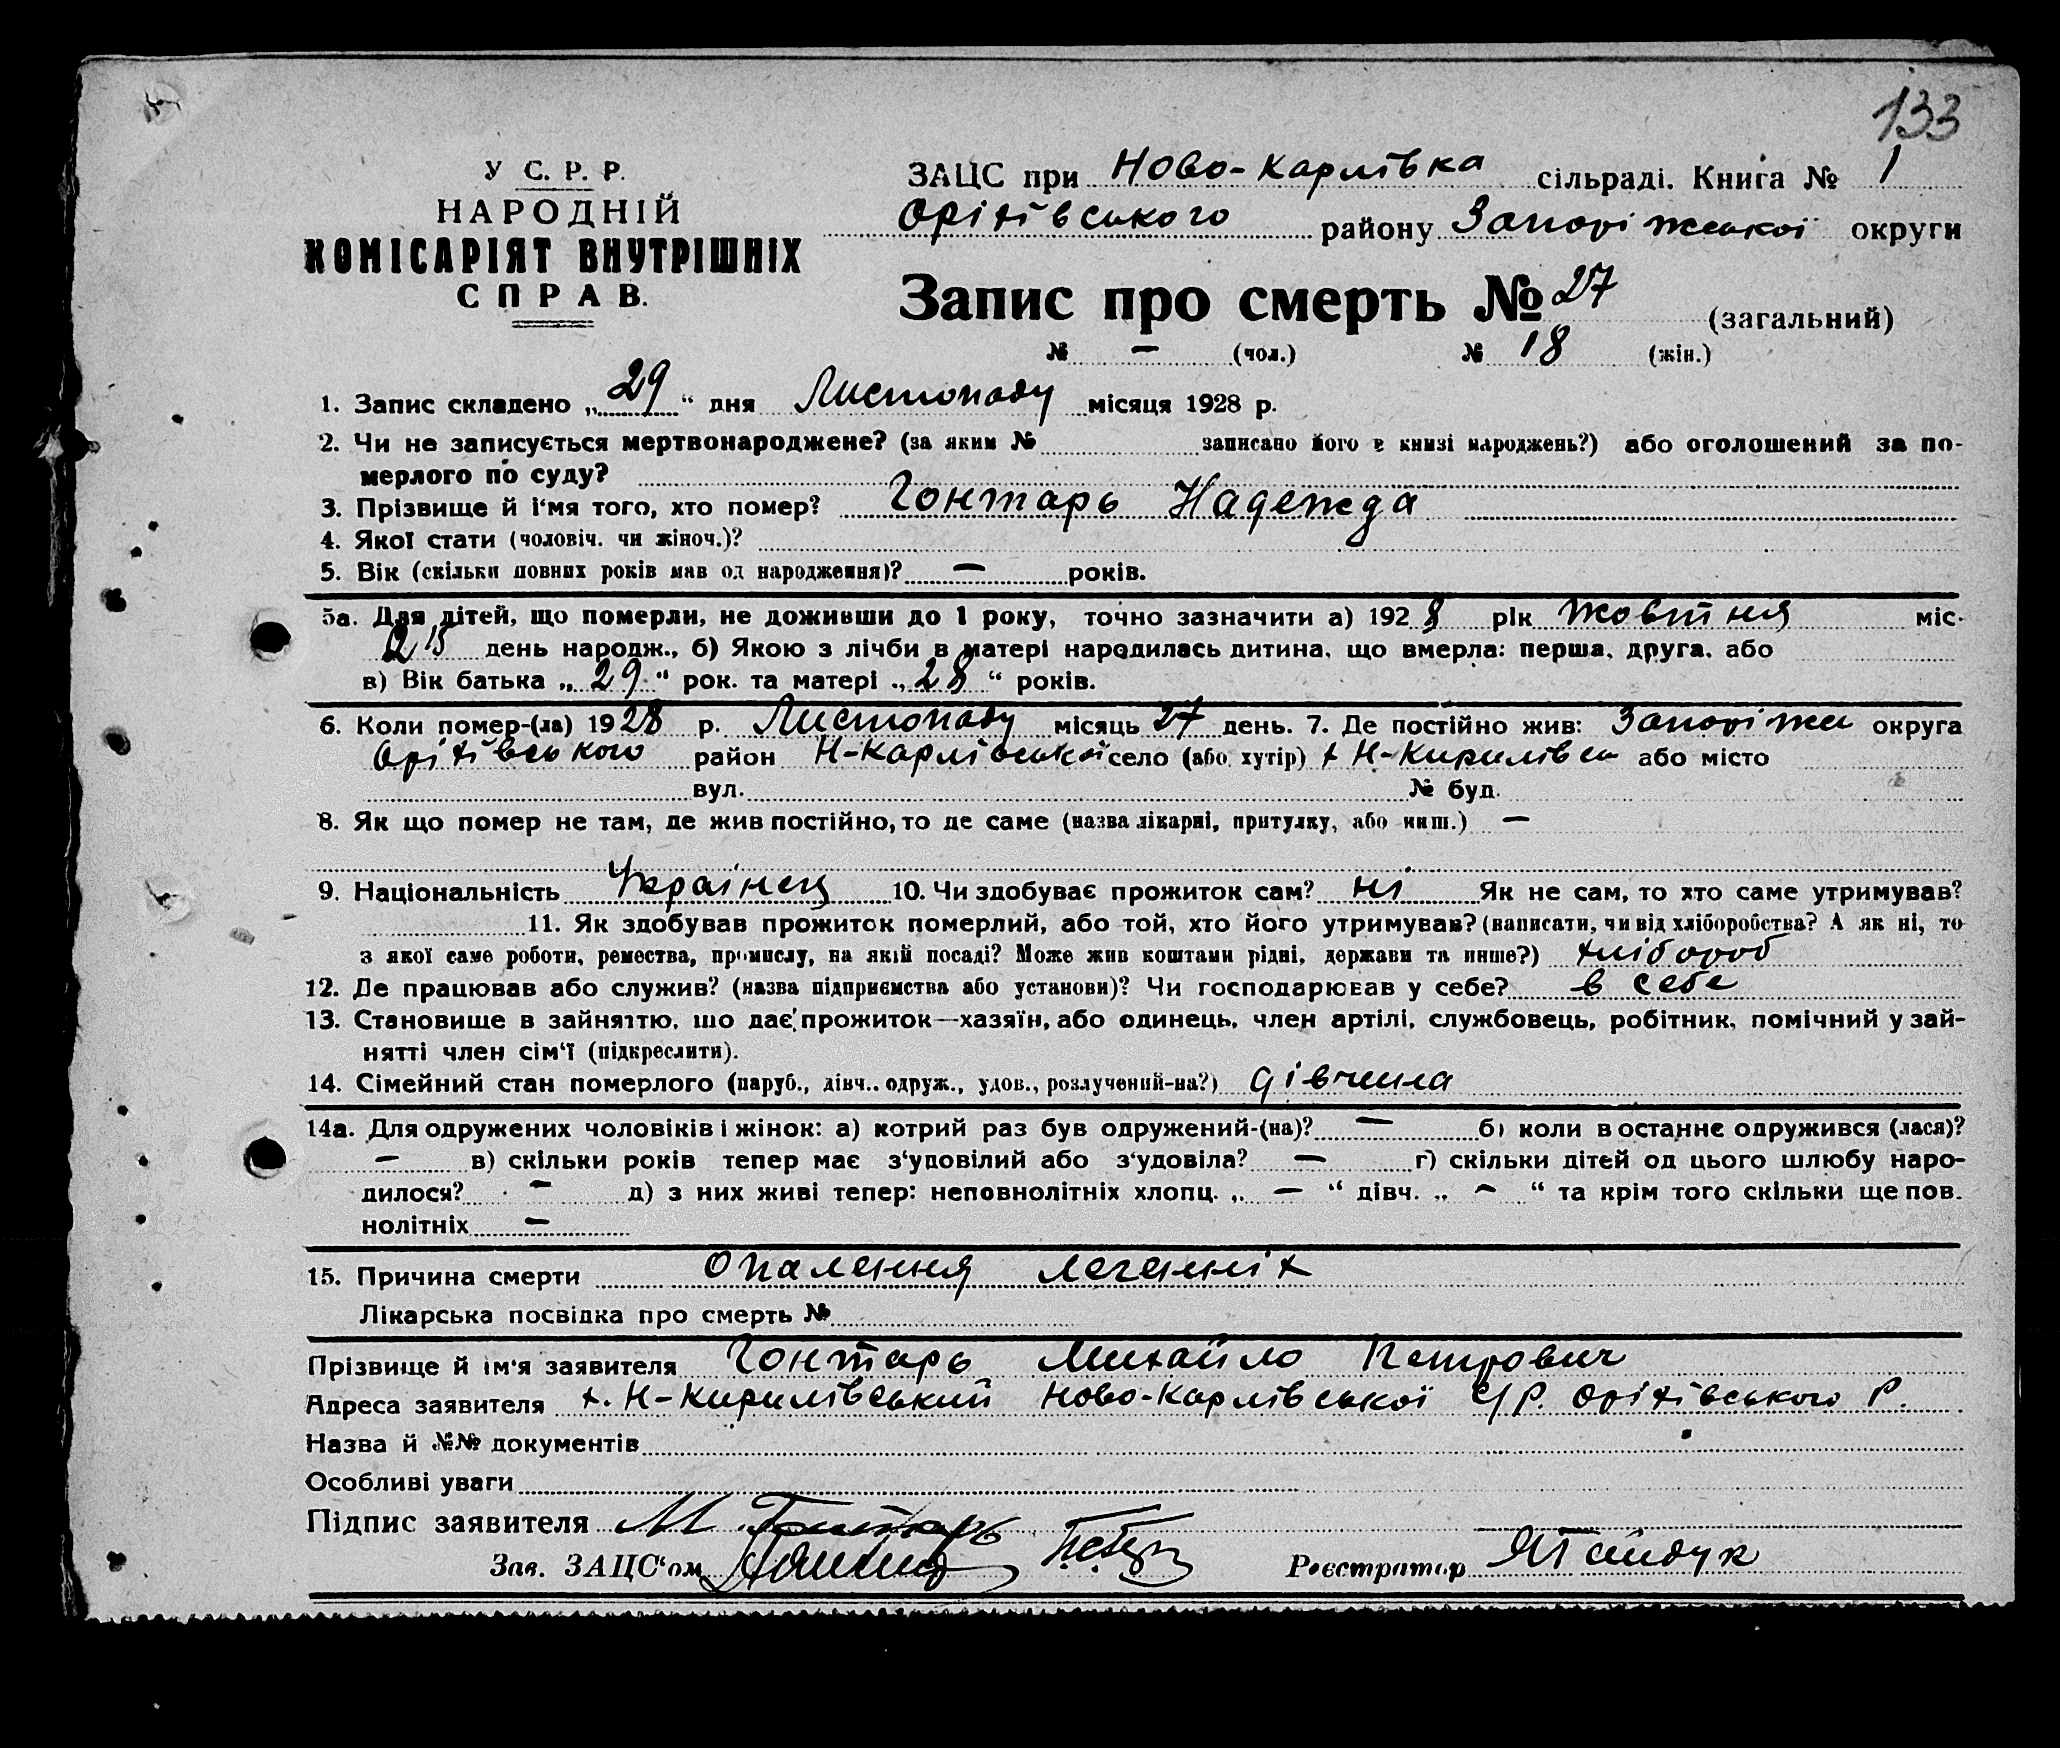 133
У С. Р. Р.
НАРОДНІЙ
КОМІСАРІЯТ ВНУТРІШНІХ
СПРАВ.
ЗАЦС при Ново-Карлівка сільраді. Книга № 1
Оріхівського району Запоріжської округи
Запис про смерть № 27 (загальний)
№ — (чол.) № 18 (жін.)
1. Запис складено „29“ дня Листопаду місяця 1928 р.
2. Чи не записується мертвонароджене? (за яким № записано його в книзі народжень?) або оголошений за по-
мерлого по суду?
3. Прізвище й і‘мя того, хто помер? Гонтарь Надежда
4. Якої стати (чоловіч. чи жіноч.)?
5. Вік (скільки повних років мав од народження)? — років.
5а. Для дітей, що померли, не доживши до 1 року, точно зазначити а) 1928 рік Жовтня міс.
день народж., б) Якою з лічби в матері народилась дитина, що вмерла: перша, друга, або
в) Вік батька „29“ рок. та матері „28“ років.
6. Коли помер-(ла) 1928 р. Листопаду місяць 27 день. 7. Де постійно жив: Запоріжи округа
Оріхівського район Н-Карлівської село (або хутір) х Н-Кирилівсь або місто
вул. № буд.
8. Як що помер не там, де жив постійно, то де саме (назва лікарні, притулку, або инш.) —
9. Національність Українец 10. Чи здобуває прожиток сам? ні Як не сам, то хто саме утримував?
11. Як здобував прожиток померлий, або той, хто його утримував? (написати, чи від хліборобства? А як ні, то
з якої саме роботи, ремества, промислу, на якій посаді? Може жив коштами рідні, держави та инше?) хлібороб
12. Де працював або служив? (назва підприємства або установи)? Чи господарював у себе? в себе
13. Становище в зайняттю, що дає прожиток—хазяїн, або одинець, член артілі, службовець, робітник, помічний у зай-
нятті член сім‘ї (підкреслити).
14. Сімейний стан померлого (паруб., дівч., одруж., удов., розлучений-на?) дівчина
14а. Для одружених чоловіків і жінок: а) котрий раз був одружений-(на)? — б) коли в останнє одружився (лася)?
— в) скільки років тепер має з‘уповілий або з‘удовіла? — г) скільки дітей од цього шлюбу наро-
дилося? — д) з них живі тепер: неповнолітніх хлопц. „ — “ дівч. „ — “ та крім того скільки ще пов.
нолітніх —
15. Причина смерти Опалення легенніх
Лікарська посвідка про смерть №
Прізвище й ім‘я заявителя Гонтарь Михайло Петрович
Адреса заявителя х. Н-Кирилівський Ново-Карлівської С/Р. Оріхівського Р.
Назва й №№ документів
Особливі уваги
Підпис заявителя М. Гонтарь
Зав. ЗАЦС‘ом
Реєстратор